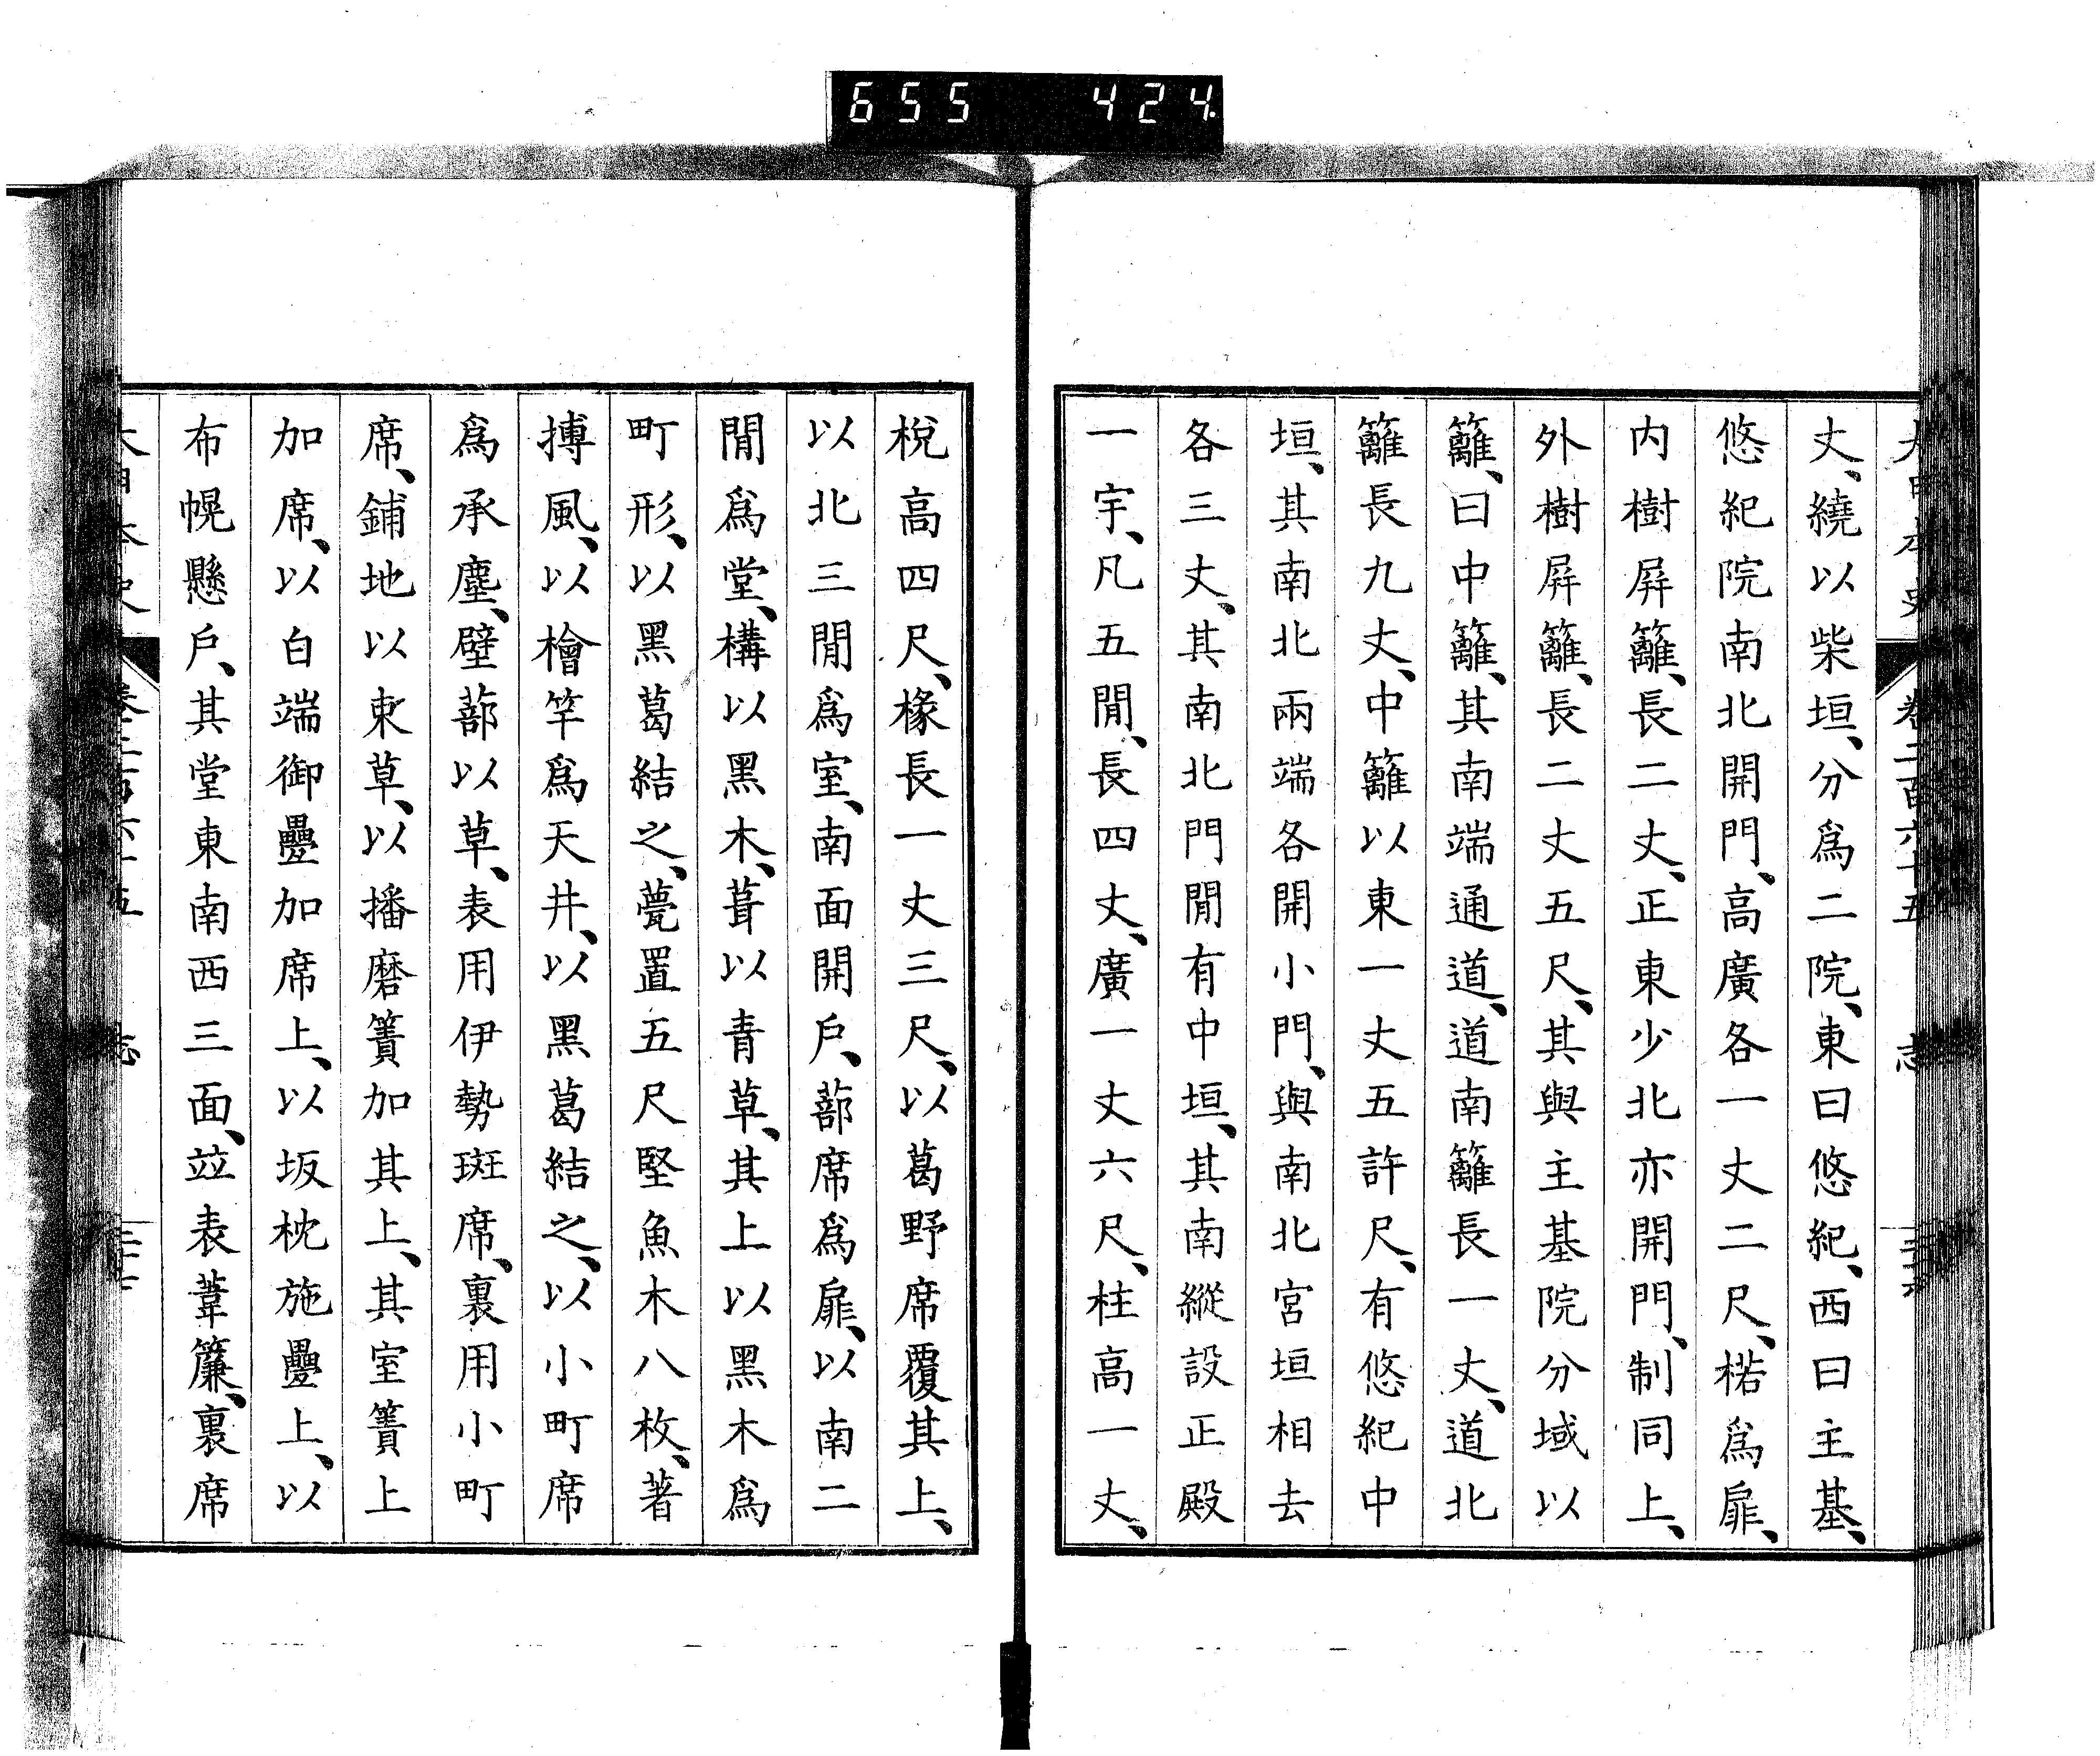 655 424
大日本史 卷二百六十五 志
丈、繞以柴垣、分爲二院、東曰悠紀、西曰主基、
悠紀院南北開門、高廣各一丈二尺、楉爲扉、
内樹屛籬、長二丈、正東少北亦開門、制同上、
外樹屛籬、長二丈五尺、其與主基院分域以
籬、曰中籬、其南端通道、道南籬長一丈、道北
籬長九丈、中籬以東一丈五許尺、有悠紀中
垣、其南北兩端各開小門、與南北宮垣相去
各三丈、其南北門閒有中垣、其南縱設正殿
一宇、凡五閒、長四丈、廣一丈六尺、柱高一丈、
梲高四尺、椽長一丈三尺、以葛野席覆其上、
以北三閒爲室、南面開戶、蔀席爲扉、以南二
閒爲堂、構以黑木、葺以青草、其上以黑木爲
町形、以黑葛結之、甍置五尺堅魚木八枚、著
搏風、以檜竿爲天井、以黑葛結之、以小町席
爲承塵、壁蔀以草、表用伊勢斑席、裏用小町
席、鋪地以束草、以播磨簀加其上、其室簀上
加席、以白端御疊加席上、以坂枕施疊上、以
布幌懸戶、其堂東南西三面、竝表葦簾、裏席
大日本史 卷二百六十五 志